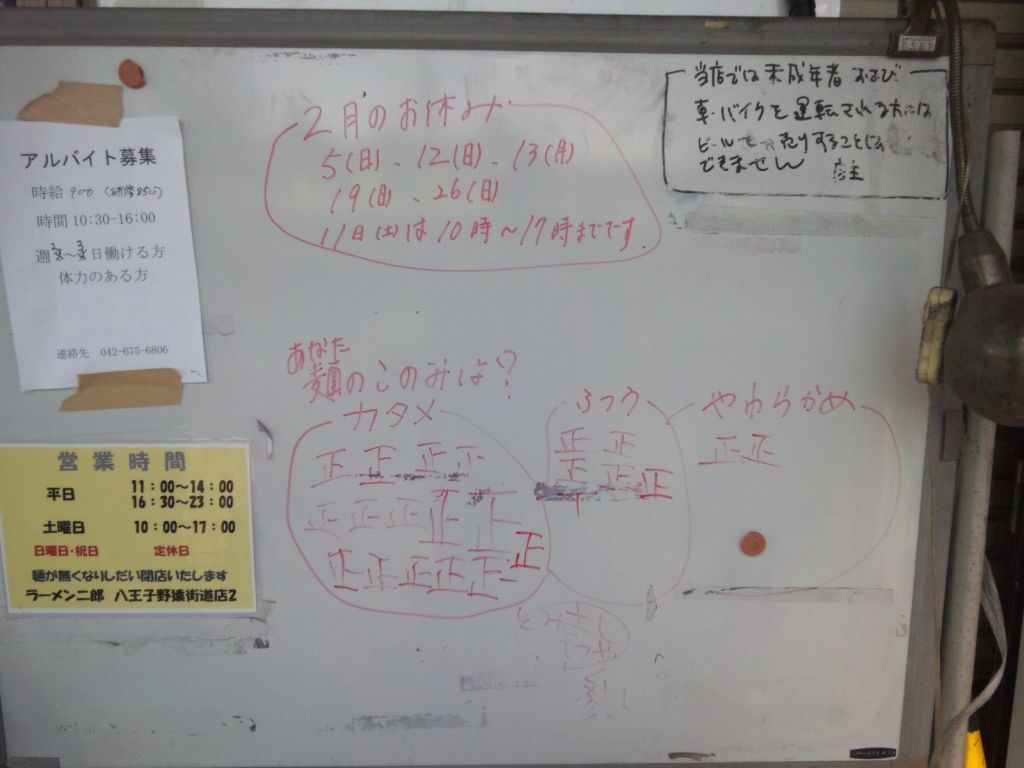 2月のお休み
5(日)、12(日)、13(月)
19(日)、26(日)
11日(土)は10時〜17時までです。
当店では未成年者および
車・バイクを運転される方には
ビールを売りすることは
できません 店主
アルバイト募集
時給 900 (研修850)
時間 10:30-16:00
週 日働ける方
体力のある方
連絡先 042-675-6806
あなた
麺のこのみは?
カタメ
正 正 正 正
正 正 正 正 正
正 正 正 正 正 正
ふつう
正 正
正 正 正
やわらかめ
正 正
営業時間
平日 11:00〜14:00
16:30〜23:00
土曜日 10:00〜17:00
日曜日・祝日 定休日
麺が無くなりしだい閉店いたします
ラーメン二郎 八王子野猿街道店2